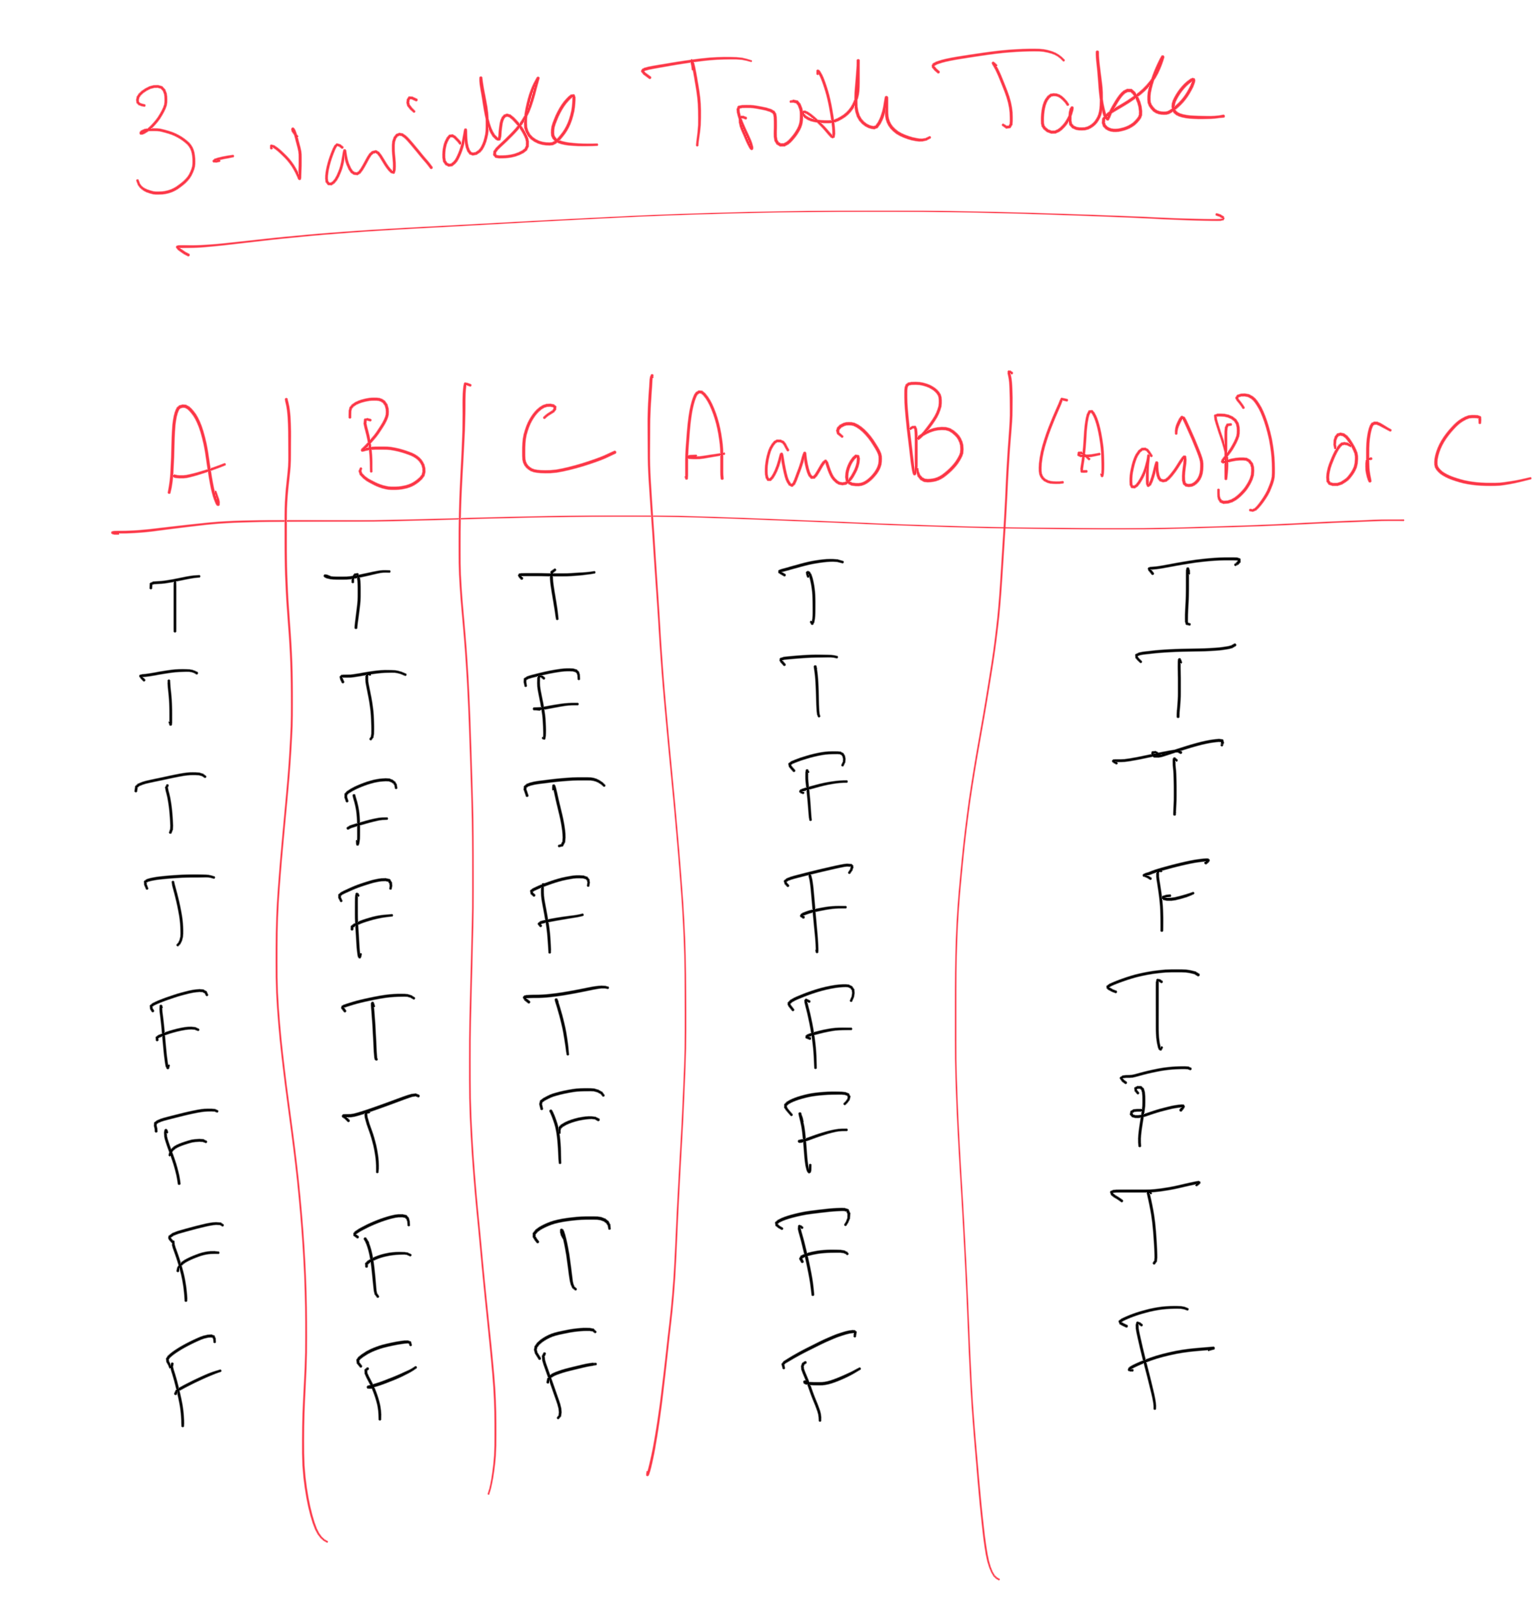 3-variable Truth Table
A B C A and B (A and B) or C
T T T T T
T T F T T
T F T F T
T F F F F
F T T F T
F T F F F
F F T F T
F F F F F